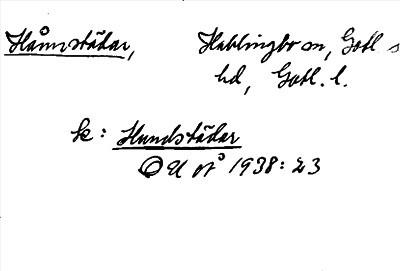 Hånnstädar, Hablingbo sn, Gotl s
hd, Gotl. l.
k: Hundstädar
OU nr 1938: 23